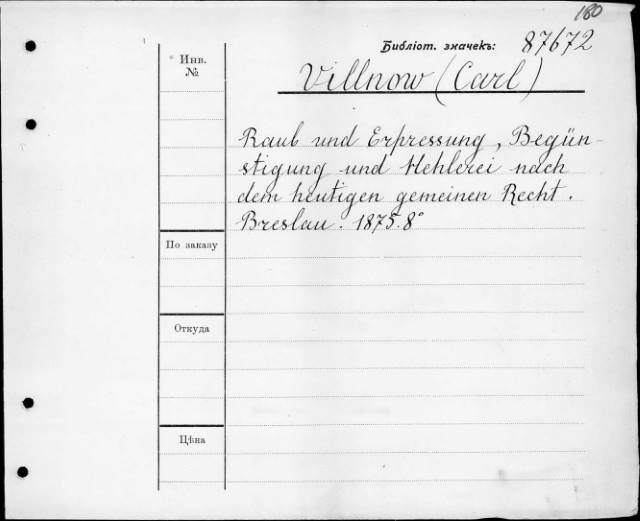 180
Библіот. значекъ: 87672
* Инв.
№
Villnow (Carl)
Raub und Erpressung, Begün-
stigung und Hehlerei nach
dem heutigen gemeinen Recht.
Breslau. 1875. 8°
По заказу
Откуда
Цѣна